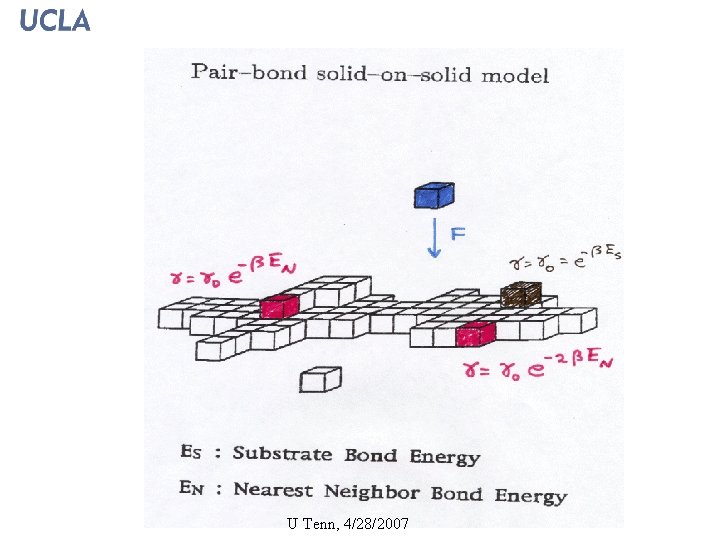 UCLA
Pair-bond solid-on-solid model
F
γ = γ₀ = e^{-βE_S}
γ = γ₀ e^{-βE_N}
γ = γ₀ e^{-2βE_N}
E_S : Substrate Bond Energy
E_N : Nearest Neighbor Bond Energy
U Tenn, 4/28/2007